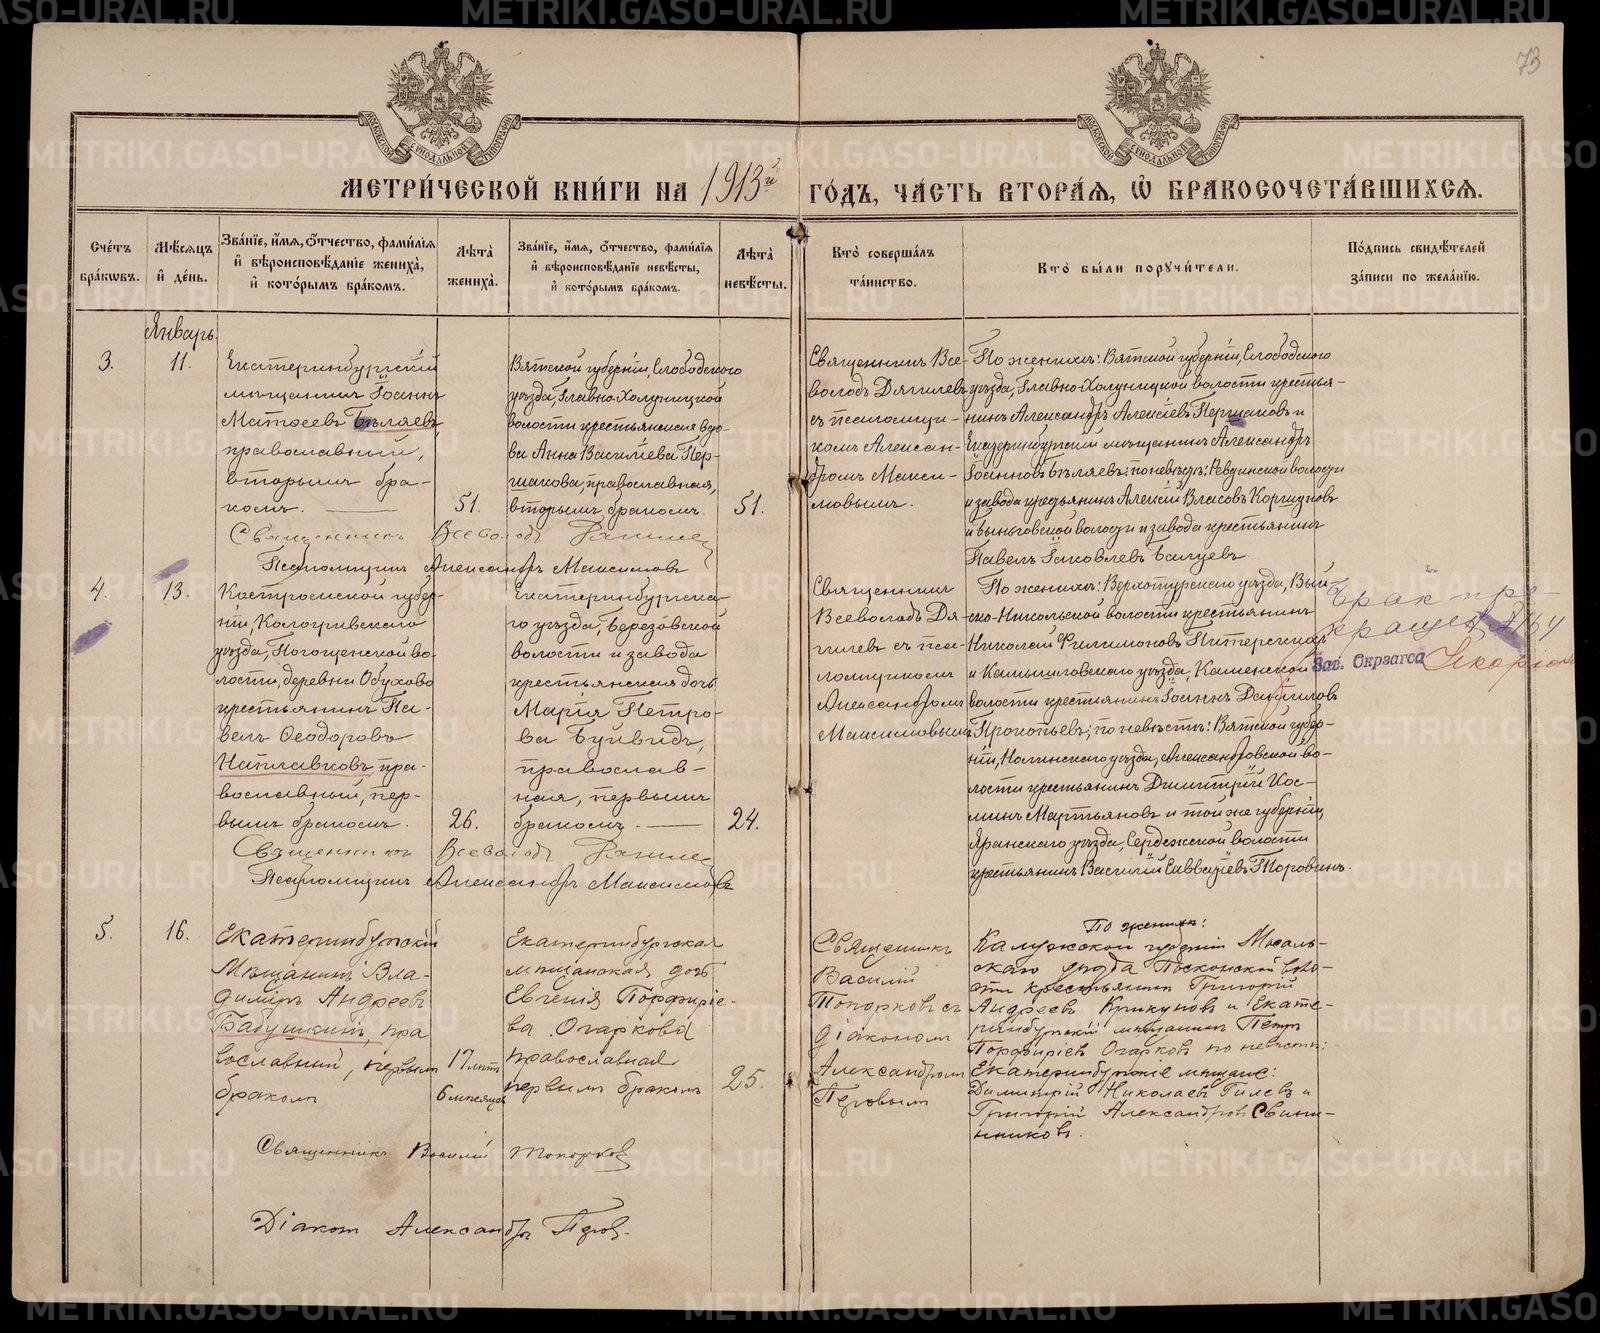 73
МОСКОВСКОЙ СѴНОДАЛЬНОЙ ТИПОГРАФІИ
МОСКОВСКОЙ СѴНОДАЛЬНОЙ ТИПОГРАФІИ
МЕТРИ́ЧЕСКОЙ КНИ́ГИ НА 1913й ГО́ДЪ, ЧА́СТЬ ВТОРА́Я, Ѡ҆ БРАКОСОЧЕТА́ВШИХСЯ.
Сче́тъ бра́кωвъ.
Мѣ́сяцъ и҆ де́нь.
Зва́нїе, и҆́мя, ѻ҆́тчество, фами́лїя и҆ вѣроисповѣ́данїе жениха̀, и҆ кото́рымъ бра́комъ.
Лѣ́та жениха̀.
Зва́нїе, и҆́мя, ѻ҆́тчество, фами́лїя и҆ вѣроисповѣ́данїе невѣ́сты, и҆ кото́рымъ бра́комъ.
Лѣ́та невѣ́сты.
Кто̀ соверша́лъ та́инство.
Кто̀ бы́ли поручи́тели.
По́дпись свидѣ́телей за́писи по жела́нїю.
Январь
3.
11.
Екатеринбургскій
мѣщанинъ Іоаннъ
Матѳеевъ Бѣляевъ,
православный,
вторымъ бра-
комъ.
51.
Вятской губерніи, Слободского
уѣзда, Главно-Холуницкой
волости крестьянская вдо-
ва Анна Василіева Пер-
шакова, православная,
вторымъ бракомъ.
51.
Священникъ Все-
володъ Дягилевъ
съ псаломщи-
комъ Алексан-
дромъ Макси-
мовымъ.
По женихѣ: Вятской губерніи, Слободского
уѣзда, Главно-Холуницкой волости крестья-
нинъ Александръ Алексіевъ Першаковъ и
Екатеринбургскій мѣщанинъ Александръ
Іоанновъ Бѣляевъ; по невѣстѣ: Ревдинской волости
и завода крестьянинъ Алексій Власовъ Коршуновъ
и Быньговской волости и завода крестьянинъ
Павелъ Іаковлевъ
Священникъ Всеволодъ Дягилевъ
Псаломщикъ Александръ Максимовъ
4.
13.
Костромской губер-
ніи, Кологривскаго
уѣзда, Погощенской во-
лости, деревни Обухово
крестьянинъ Па-
велъ Ѳеодоровъ
Наплавковъ, пра-
вославный, пер-
вымъ бракомъ.
26.
Екатеринбургска-
го уѣзда, Березовской
волости и завода
крестьянская дочь
Марія Петро-
ва Буйвидъ,
православ-
ная, первымъ
бракомъ.
24.
Священникъ
Всеволодъ Дя-
гилевъ съ пса-
ломщикомъ
Александромъ
Максимовымъ
По женихѣ: Верхотурскаго уѣзда, Вый-
ско-Никольской волости крестьянинъ
Николай Филимоновъ Питерскихъ
и Камышловскаго уѣзда, Каменской
волости крестьянинъ Іоаннъ Даніиловъ
Прокопьевъ; по невѣстѣ: Вятской губер-
ніи, Нолинскаго уѣзда, Александровской во-
лости крестьянинъ Димитрій Кос-
минъ Мартьяновъ и той же губерніи,
Яранскаго уѣзда, Сердежской волости
крестьянинъ Василій Савватіевъ
Брак пре-
кращен
Зав. Окрзагса
Священникъ Всеволодъ Дягилевъ
Псаломщикъ Александръ Максимовъ
5.
16.
Екатеринбургскій
Мѣщанинъ Вла-
димиръ Андреевъ
Бабушкинъ, пра
вославный, первымъ
бракомъ
17 лѣтъ
6 мѣсяцев
Екатеринбургская
мѣщанская дочь
Евгенія Порфиріе-
ва Огаркова
православная
первымъ бракомъ
25.
Священникъ
Василій
Топорковъ съ
діакономъ
Александромъ
Перовымъ
По женихѣ:
Калужской губерніи Мосаль-
скаго уѣзда Посконской воло-
сти крестьянинъ Григорій
Андреевъ Крикуновъ и Екате-
ринбургскій мѣщанинъ Петръ
Порфиріев Огарков по невѣстѣ:
Екатеринбургскіе мѣщане:
Димитрій Николаевъ Гилевъ и
Григорій Александров Свин-
нинков.
Священникъ Василій Топорков
Діаконъ Александръ Перов.
METRIKI.GASO-URAL.RU